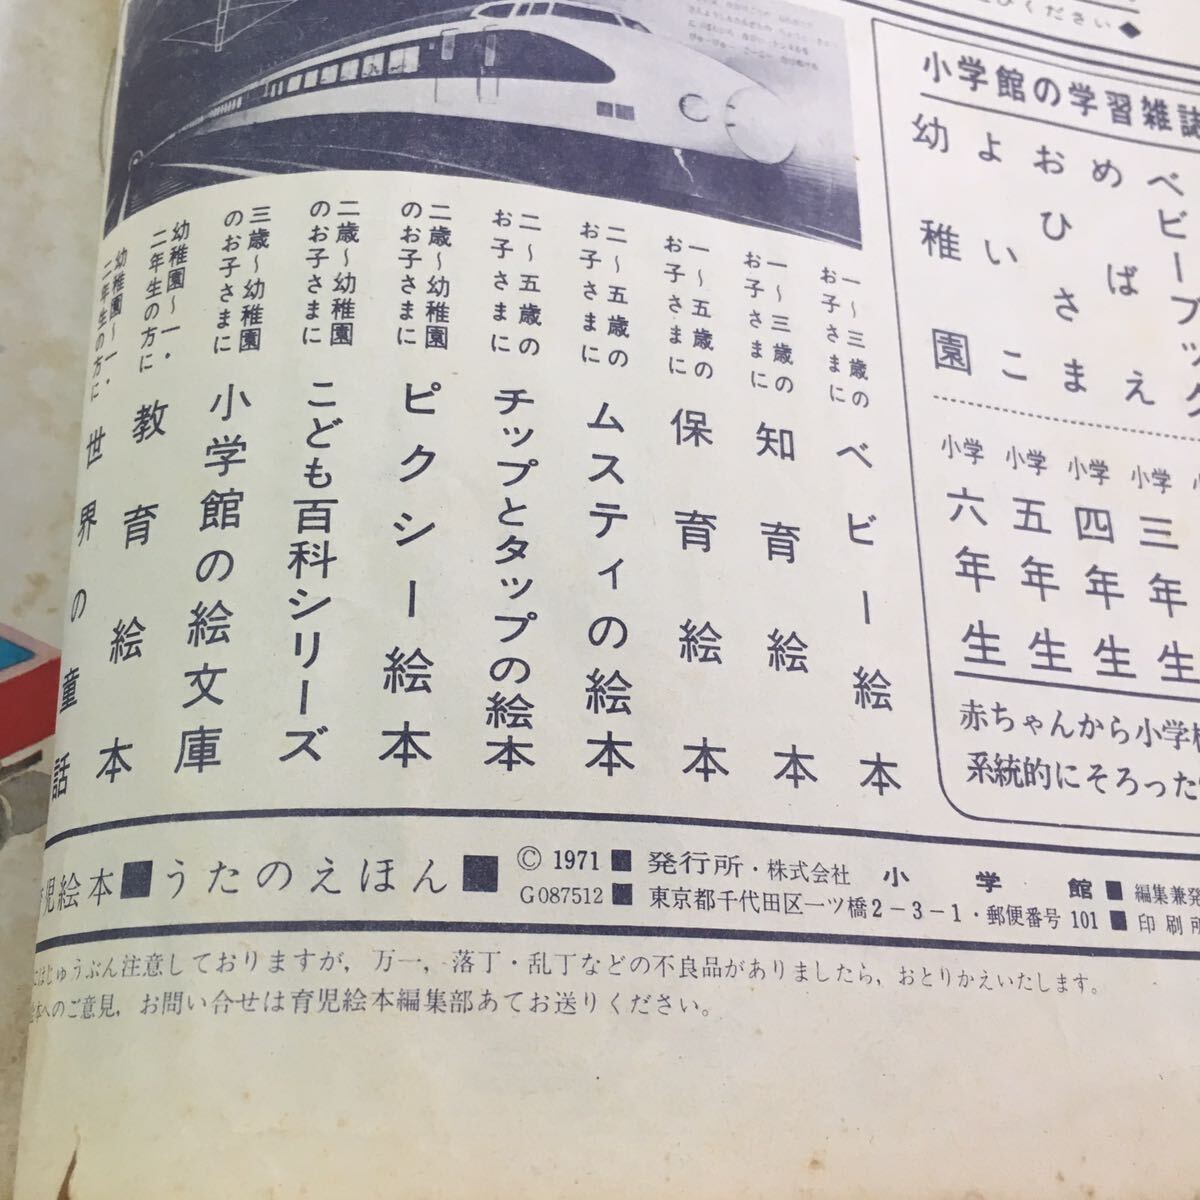 ください◆
小学館の学習雑誌
ベビーブック
めばえ
おひさま
よいこ
幼稚園
小学三年生
小学四年生
小学五年生
小学六年生
赤ちゃんから小学校
系統的にそろった
一～三歳の
お子さまに
ベビー絵本
一～三歳の
お子さまに
知育絵本
一～五歳の
お子さまに
保育絵本
二～五歳の
お子さまに
ムスティの絵本
二～五歳の
お子さまに
チップとタップの絵本
二歳～幼稚園
のお子さまに
ピクシー絵本
二歳～幼稚園
のお子さまに
こども百科シリーズ
三歳～幼稚園
のお子さまに
小学館の絵文庫
幼稚園～一・
二年生の方に
教育絵本
幼稚園～一・
二年生の方に
世界の童話
児絵本■うたのえほん■
© 1971 ■ 発行所・株式会社 小学館 ■ 編集兼発
G087512 ■ 東京都千代田区一ツ橋2－3－1・郵便番号 101 ■ 印刷所
はじゅうぶん注意しておりますが，万一，落丁・乱丁などの不良品がありましたら，おとりかえいたします。
本へのご意見，お問い合せは育児絵本編集部あてお送りください。